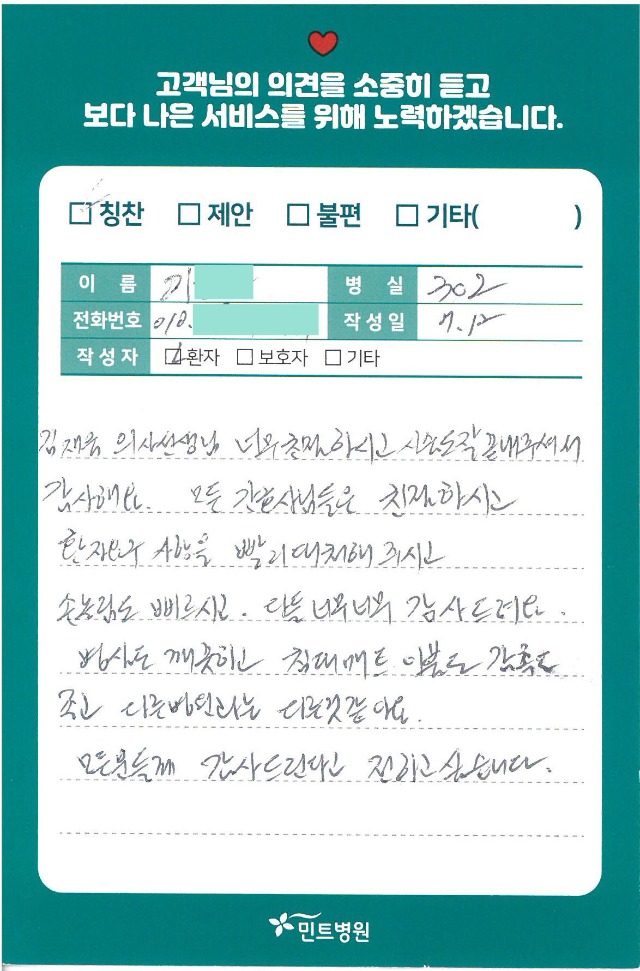 고객님의 의견을 소중히 듣고
보다 나은 서비스를 위해 노력하겠습니다.
칭찬 제안 불편 기타( )
이 름 병 실 302
전화번호 010. 작성일 7.12
작성자 환자 보호자 기타
김재욱 의사선생님 너무 친절하시고 시술도 잘 끝내주셔서
감사해요. 모든 간호사님들은 친절하시고
환자요구 사항을 빨리 대처해 주시고
손놀림도 빠르시고. 다들 너무너무 감사드려요.
병실도 깨끗하고 침대매트 이불도 감촉도
좋고 다른병원과는 다른것 같아요.
모든분들께 감사드린다고 전하고 싶습니다.
민트병원